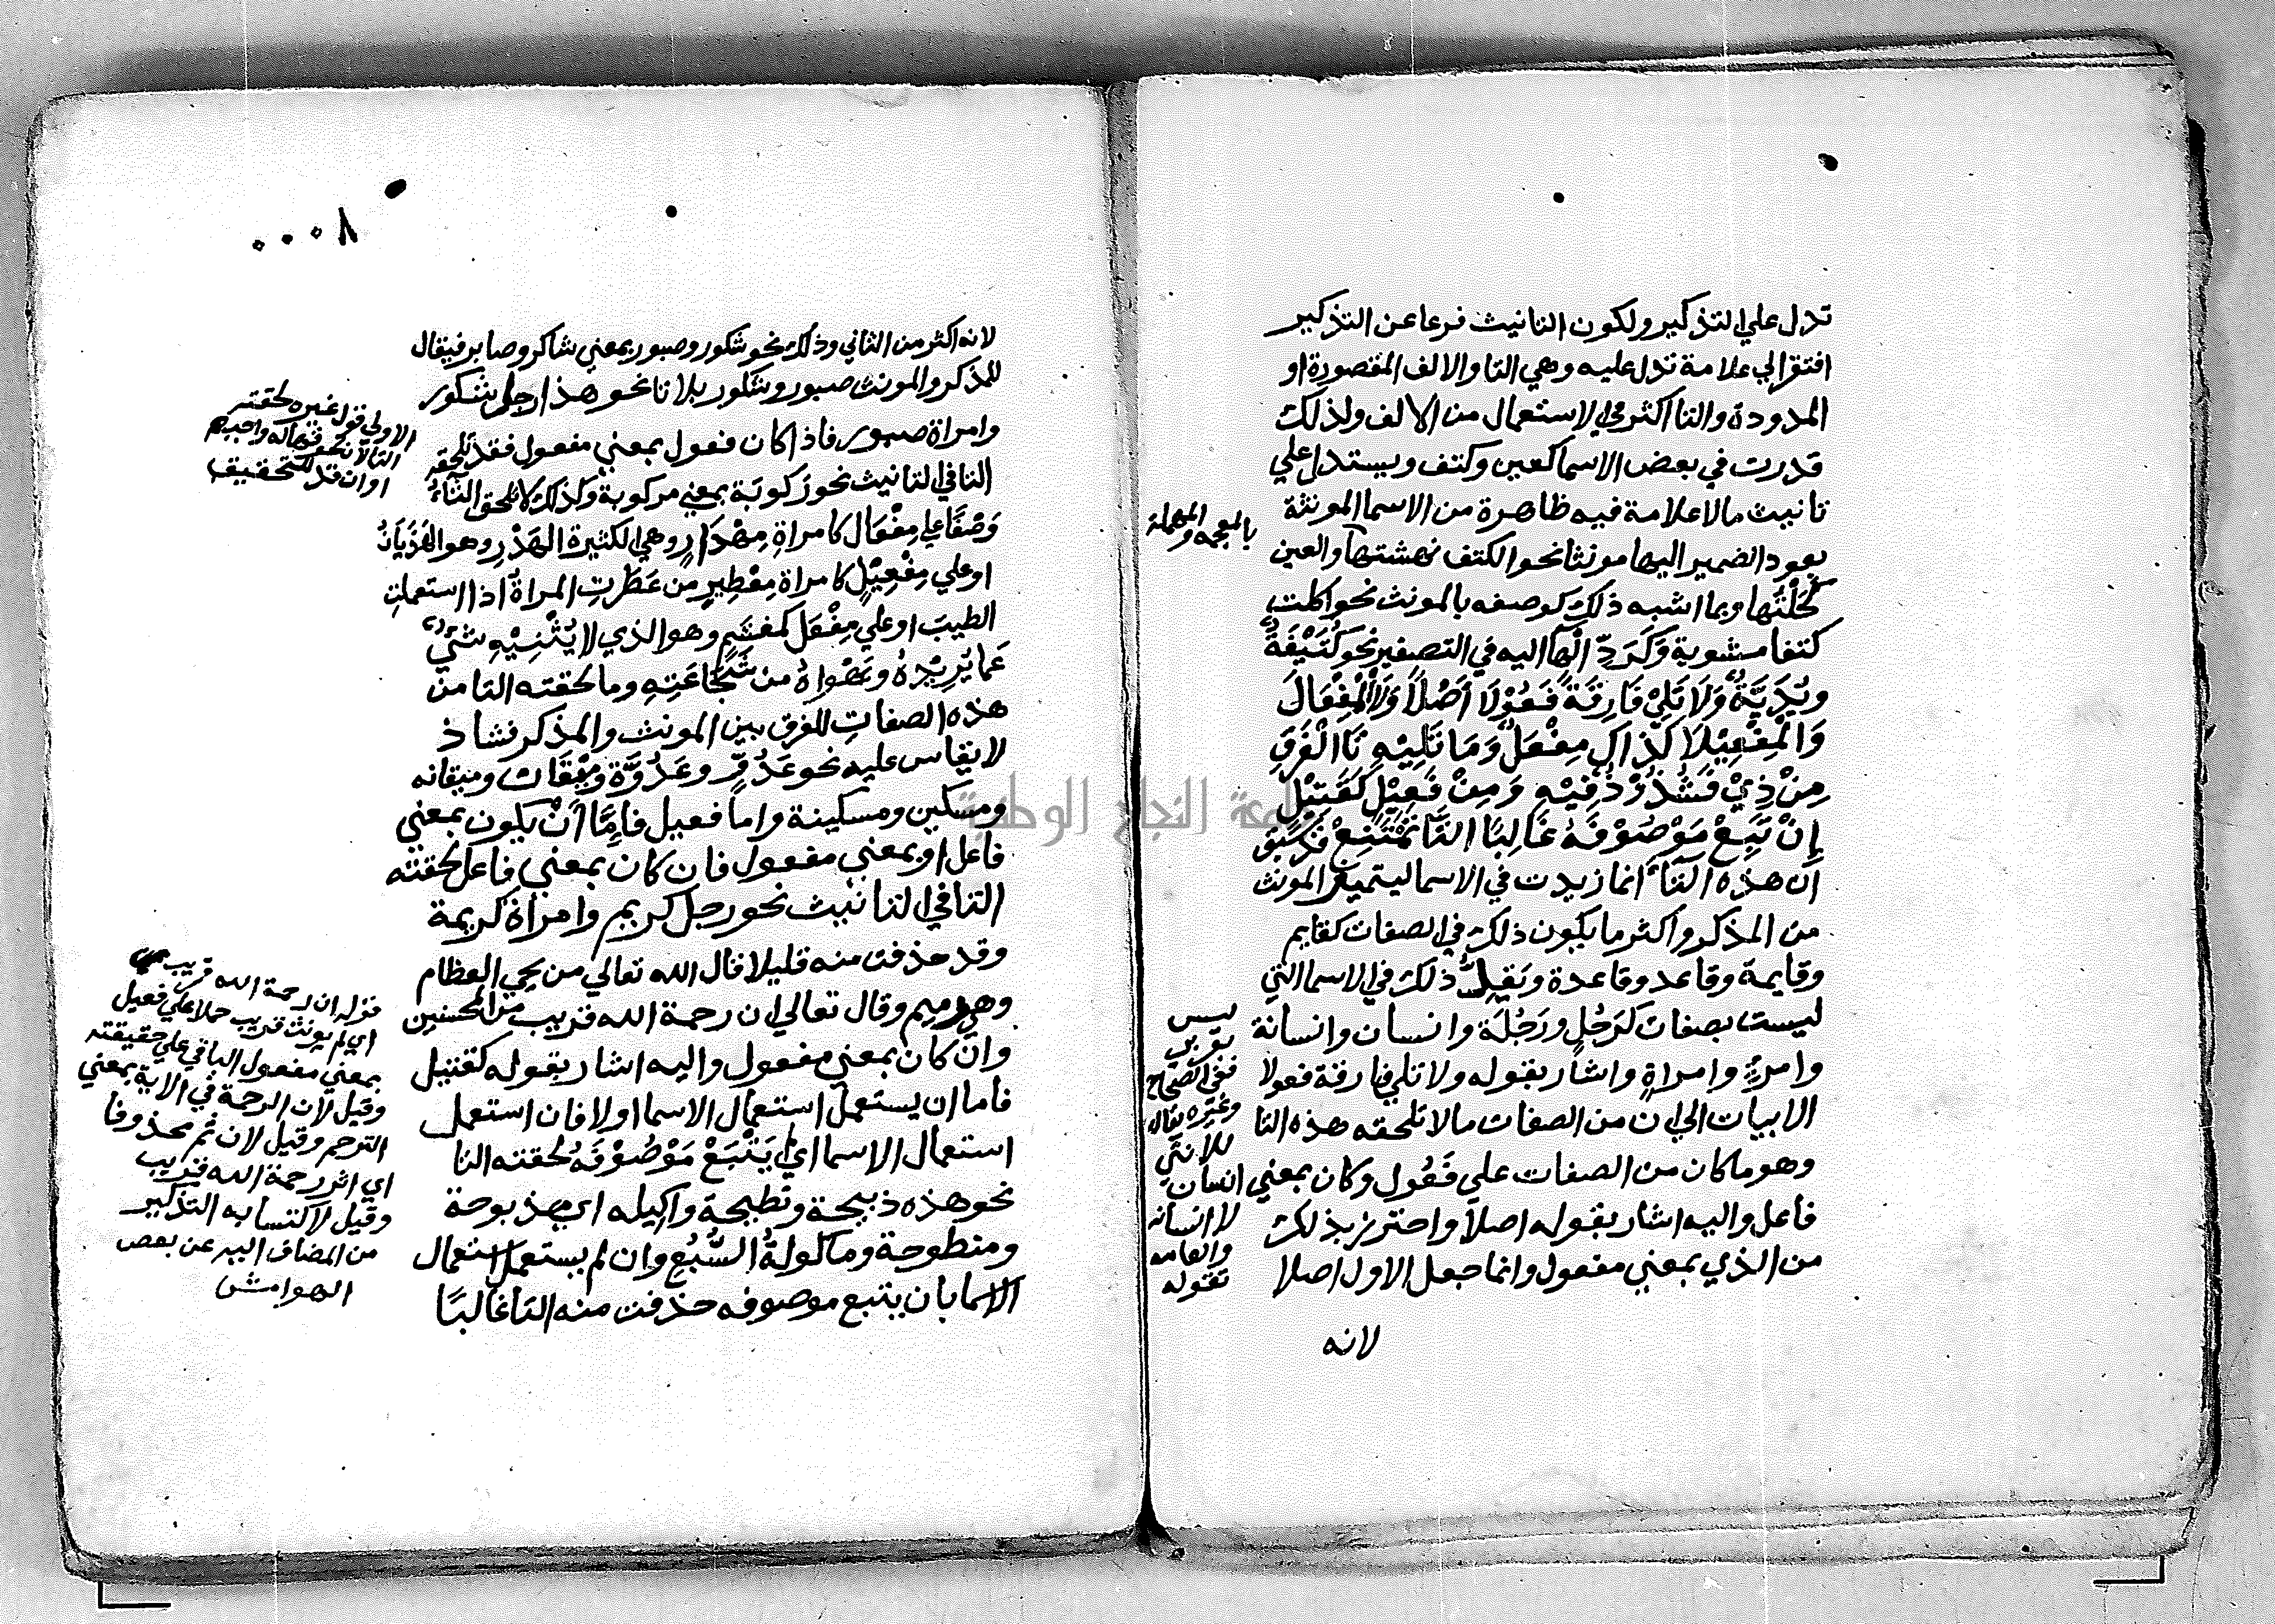 تدل علي التذكير ولكون التانيث فرعا عن التذكير
افتقر الي علامة تدل عليه وهي التا والالف المقصورة او
الممدودة والتا اكثر في الاستعمال من الالف ولذلك
قدرت في بعض الاسما كعين وكتف ويستدل علي
تانيث مالا علامة فيه ظاهرة من الاسما المونثة
بعود الضمير اليها مونثا نحو الكتف نهشتها والعين
كَحَلْتُها وبما اشبه ذلك كوصفه بالمونث نحو اكلت
كتفا مشوية وَكَرَدِّ الْهَا اليه في التصغير نحو كُتَيْفَةٌ
ويُدَيَّةٌ وَلَا تَلِيْ فَارِقَةً فَعُوْلَا اَصْلًا وَلَا الْمِفْعَالَ
وَالْمِفْعِيْلَا كَذَاكَ مِفْعَلٌ وَمَا تَلِيْهِ تَا الْفَرْقِ
مِنْ ذِيْ فَشُذُوْذٌ فِيْهِ وَمِنْ فَعِيْلٍ كَقَتِيْلٍ
إِنْ تَبِعْ مَوْصُوْفَهُ غَالِبًا التَّا تَمْتَنِعْ قد سبق
ان هذه التَّا انما زيدت في الاسما ليتميز المونث
من المذكر واكثر ما يكون ذلك في الصفات كقايم
وقايمة وقاعد وقاعدة وَيَقِلُّ ذلك في الاسما التي
ليست بصفات كرَجُلٍ ورَجُلَة وانسان وانسانة
وامرءٍ وامراةٍ واشار بقوله ولا تلي فارقة فعولا
الابيات الي ان من الصفات مالا تلحقه هذه التا
وهو ما كان من الصفات علي فَعُول وكان بمعني
فاعل واليه اشار بقوله اصلا واحترز بذلك
من الذي بمعني مفعول وانما جعل الاول اصلا
لانه
بالمعجمه والمهملة
ليس
ففي الصحاح
وغيره يقال
للانثي
انسان
لا انسانه
والعامه
تقوله
٠٠٠٨
لانه اكثر من الثاني وذلك نحو شكور وصبور بمعني شاكر وصابر فيقال
للمذكر والمونث صبور وشكور بلا تا نحو هذا رجل شكور
وامراة صبور فاذا كان فعول بمعني مفعول فقد تلحقه
التا في التانيث نحو ركوبَة بمعني مركوبة وكذلك لا تلحق التَّاءُ
وَصْفًا علي مِفْعَال كامراةٍ مِهْذَارٍ وهي الكثيرة الهَذْرِ وهو الهَذَيَانُ
او علي مِفْعِيْلٍ كامراة مِعْطِيرٍ من عَطَرَتِ المراةُ اذا استعملتِ
الطيبَ او علي مِفْعَل كمغشَمٍ وهو الذي لا يُثْنِيْهِ شيءٌ
عَمَا يُرِيْدُهُ ويَهْواهُ من شَجَاعَتِهِ وما لحقته التا من
هذه الصفاتِ للفرق بين المونث والمذكر فشاذ
لا يقاس عليه نحو عَدُوٍّ وعَدُوَّة ومِيْقَات وميقانه
ومسكين ومسكينة واما فعيل فاِمَّا اَنْ يكون بمعني
فاعل او بمعني مفعول فان كان بمعني فاعل لحقته
التا في التانيث نحو رجل كريم وامراة كريمة
وقد حذفت منه قليلا قال الله تعالي من يحي العظام
وهي رميم وقال تعالي ان رحمة الله قريب من المحسنين
وان كان بمعني مفعول واليه اشار بقوله كقتيل
فاما ان يستعمل استعمال الاسما اولا فان استعمل
استعمال الاسما اي لَمْ يَتْبَعْ مَوْصُوْفَهُ لحقته التا
نحو هذه ذبيحة ونطيحة واكيله اي مذبوحة
ومنطوحة وماكولةُ السَّبُعِ وان لم يستعمل استعمال
الاسما بان يتبع موصوفه حذفت منه التا غالبًا
الاولي قول غيره لحقته
قوله ان رحمة الله قريب
اي لم يونث قريب حملا علي فعيل
بمعني مفعول الباقي علي حقيقته
وقيل لان الرحمة في الاية بمعني
الترحم وقيل لان ثم محذوفا
اي اثر رحمة الله قريب
وقيل لاكتسابه التذكير
من المضاف اليه عن بعض
الهوامش
جامعة النجاح الوطنية